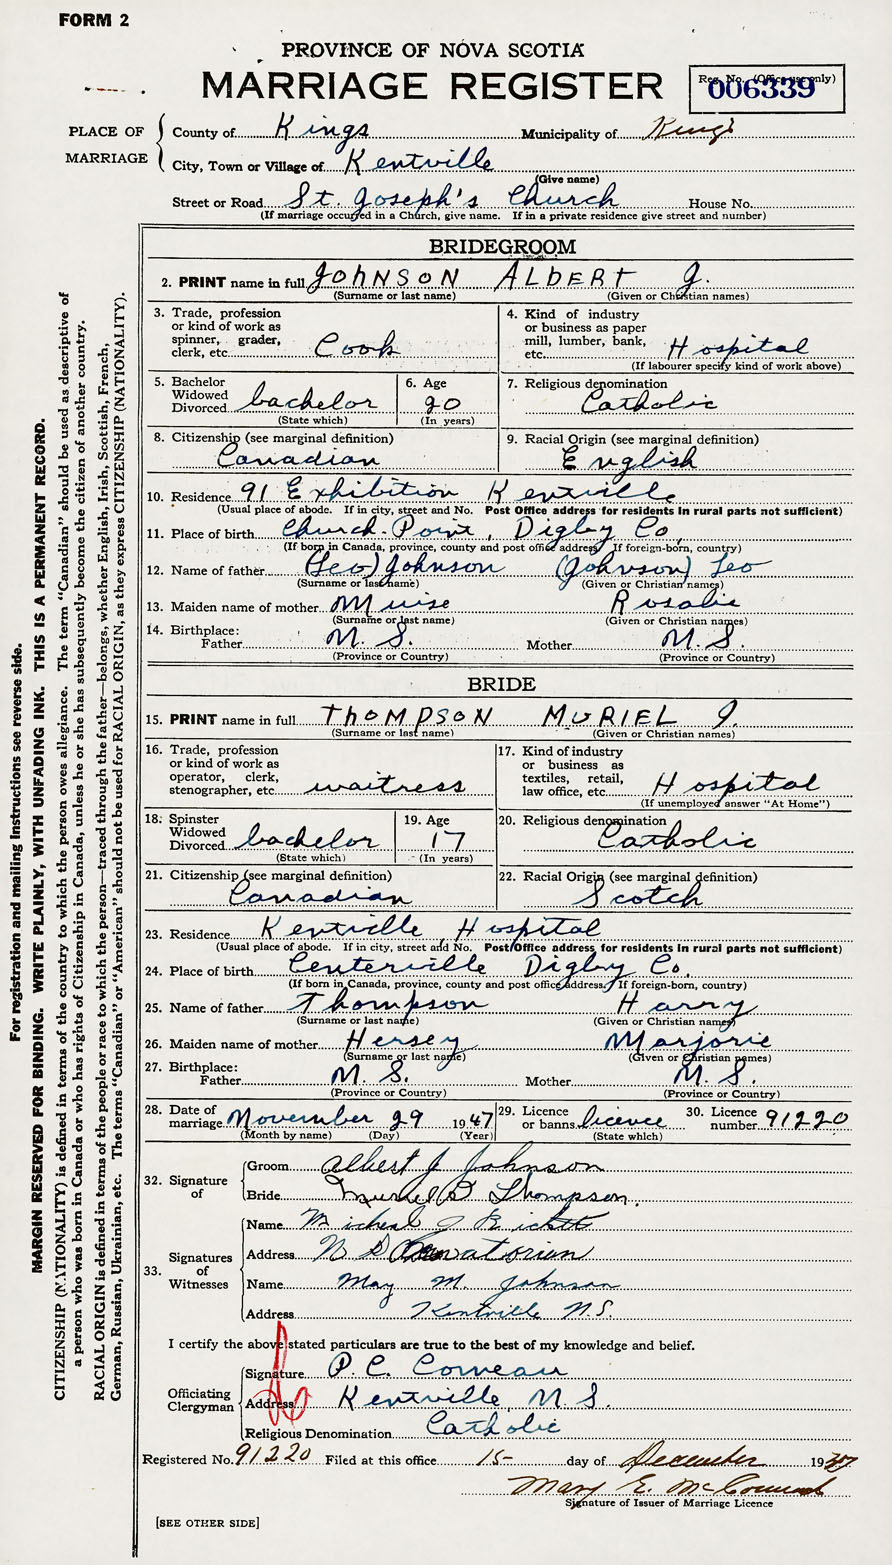 FORM 2
PROVINCE OF NOVA SCOTIA
MARRIAGE REGISTER
Reg. No. (Office use only)
006339
PLACE OF MARRIAGE
County of Kings Municipality of Kings
City, Town or Village of Kentville
(Give name)
Street or Road St. Joseph's Church House No.
(If marriage occurred in a Church, give name. If in a private residence give street and number)
BRIDEGROOM
2. PRINT name in full JOHNSON ALBERT J.
(Surname or last name) (Given or Christian names)
3. Trade, profession or kind of work as spinner, grader, clerk, etc. Cook
4. Kind of industry or business as paper mill, lumber, bank, etc. Hospital
(If labourer specify kind of work above)
5. Bachelor Widowed Divorced bachelor
(State which)
6. Age 20
(In years)
7. Religious denomination
Catholic
8. Citizenship (see marginal definition)
Canadian
9. Racial Origin (see marginal definition)
English
10. Residence 91 Exhibition Kentville
(Usual place of abode. If in city, street and No. Post Office address for residents in rural parts not sufficient)
11. Place of birth Church Point, Digby Co.
(If born in Canada, province, county and post office address. If foreign-born, country)
12. Name of father (Leo) Johnson (Johnson) Leo
(Surname or last name) (Given or Christian names)
13. Maiden name of mother Muise Rosalie
(Surname or last name) (Given or Christian names)
14. Birthplace:
Father N. S. Mother N. S.
(Province or Country) (Province or Country)
BRIDE
15. PRINT name in full THOMPSON MURIEL J.
(Surname or last name) (Given or Christian names)
16. Trade, profession or kind of work as operator, clerk, stenographer, etc. waitress
17. Kind of industry or business as textiles, retail, law office, etc. Hospital
(If unemployed answer "At Home")
18. Spinster Widowed Divorced bachelor
(State which)
19. Age 17
(In years)
20. Religious denomination
Catholic
21. Citizenship (see marginal definition)
Canadian
22. Racial Origin (see marginal definition)
Scotch
23. Residence Kentville Hospital
(Usual place of abode. If in city, street and No. Post Office address for residents in rural parts not sufficient)
24. Place of birth Centerville Digby Co.
(If born in Canada, province, county and post office address. If foreign-born, country)
25. Name of father Thompson Harry
(Surname or last name) (Given or Christian names)
26. Maiden name of mother Hersey Marjorie
(Surname or last name) (Given or Christian names)
27. Birthplace:
Father N. S. Mother N. S.
(Province or Country) (Province or Country)
28. Date of marriage November 29 1947
(Month by name) (Day) (Year)
29. Licence or banns licence
(State which)
30. Licence number 91220
32. Signature of
Groom Albert J Johnson
Bride Muriel Thompson
33. Signatures of Witnesses
Name Micheal J
Address N S
Name May M. Johnson
Address Kentville N.S.
I certify the above stated particulars are true to the best of my knowledge and belief.
Officiating Clergyman
Signature P. C. Comeau
Address Kentville, N. S.
Religious Denomination Catholic
Registered No. 91220 Filed at this office 15- day of December 19
Mary E.
Signature of Issuer of Marriage Licence
[SEE OTHER SIDE]
For registration and mailing instructions see reverse side.
MARGIN RESERVED FOR BINDING. WRITE PLAINLY, WITH UNFADING INK. THIS IS A PERMANENT RECORD.
CITIZENSHIP (NATIONALITY) is defined in terms of the country to which the person owes allegiance. The term "Canadian" should be used as descriptive of
a person who was born in Canada or who has rights of Citizenship in Canada, unless he or she has subsequently become the citizen of another country.
RACIAL ORIGIN is defined in terms of the people or race to which the person—traced through the father—belongs, whether English, Irish, Scottish, French,
German, Russian, Ukrainian, etc. The terms "Canadian" or "American" should not be used for RACIAL ORIGIN, as they express CITIZENSHIP (NATIONALITY).